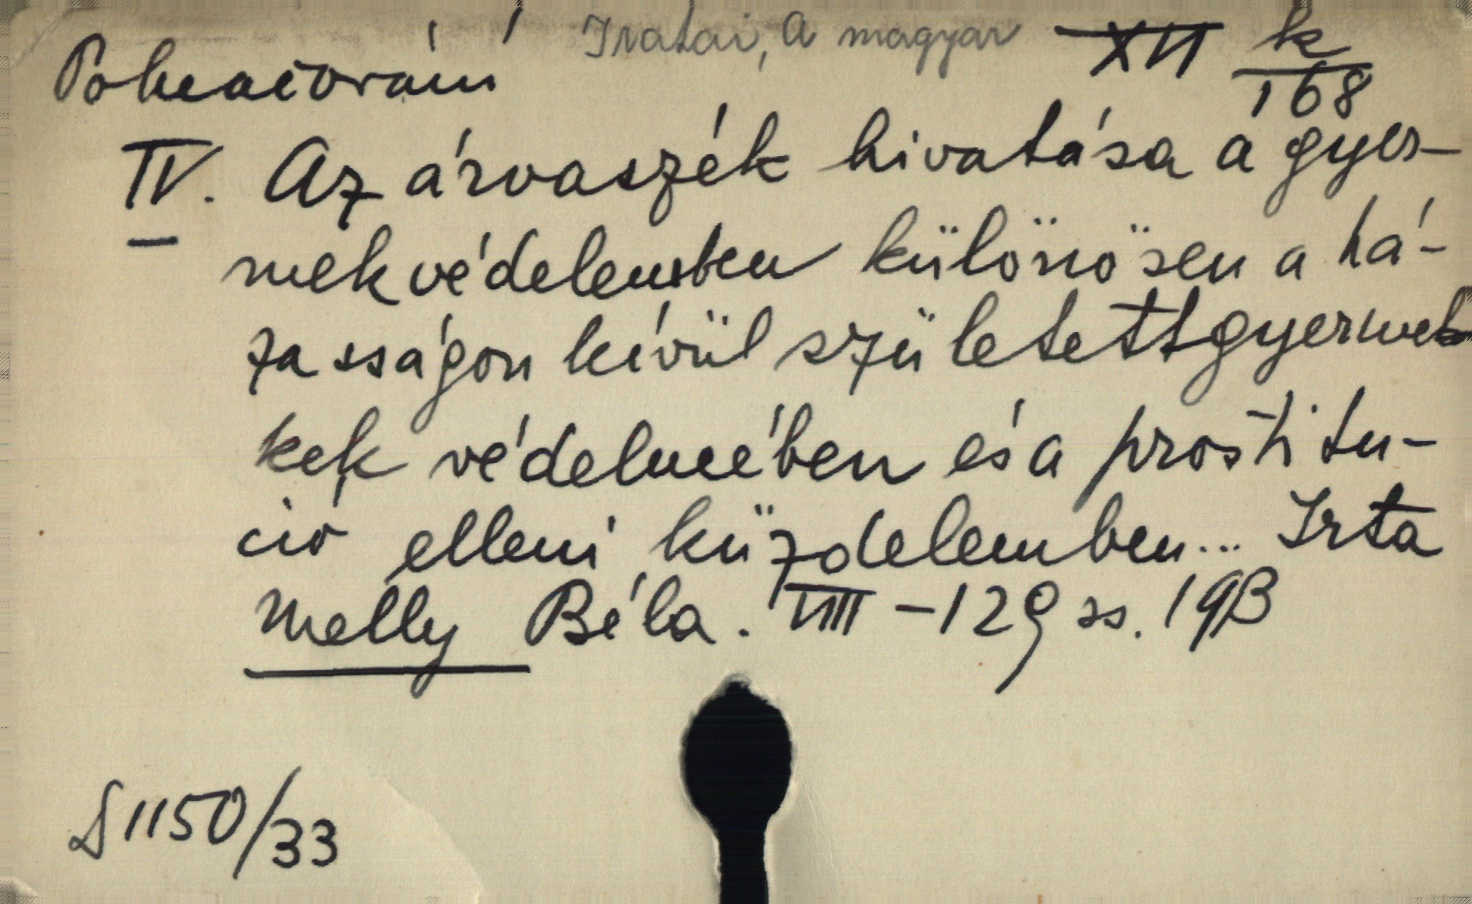 Iratai, A magyar XII k/168
IV. Az árvaszék hivatása a gyer-
mekvédelemben különösen a há-
zasságon kívül született gyermek
kek védelmében és a prostitu-
ció elleni küzdelemben... Irta
Melly Béla. VIII - 129 ss. 1913
1150/33